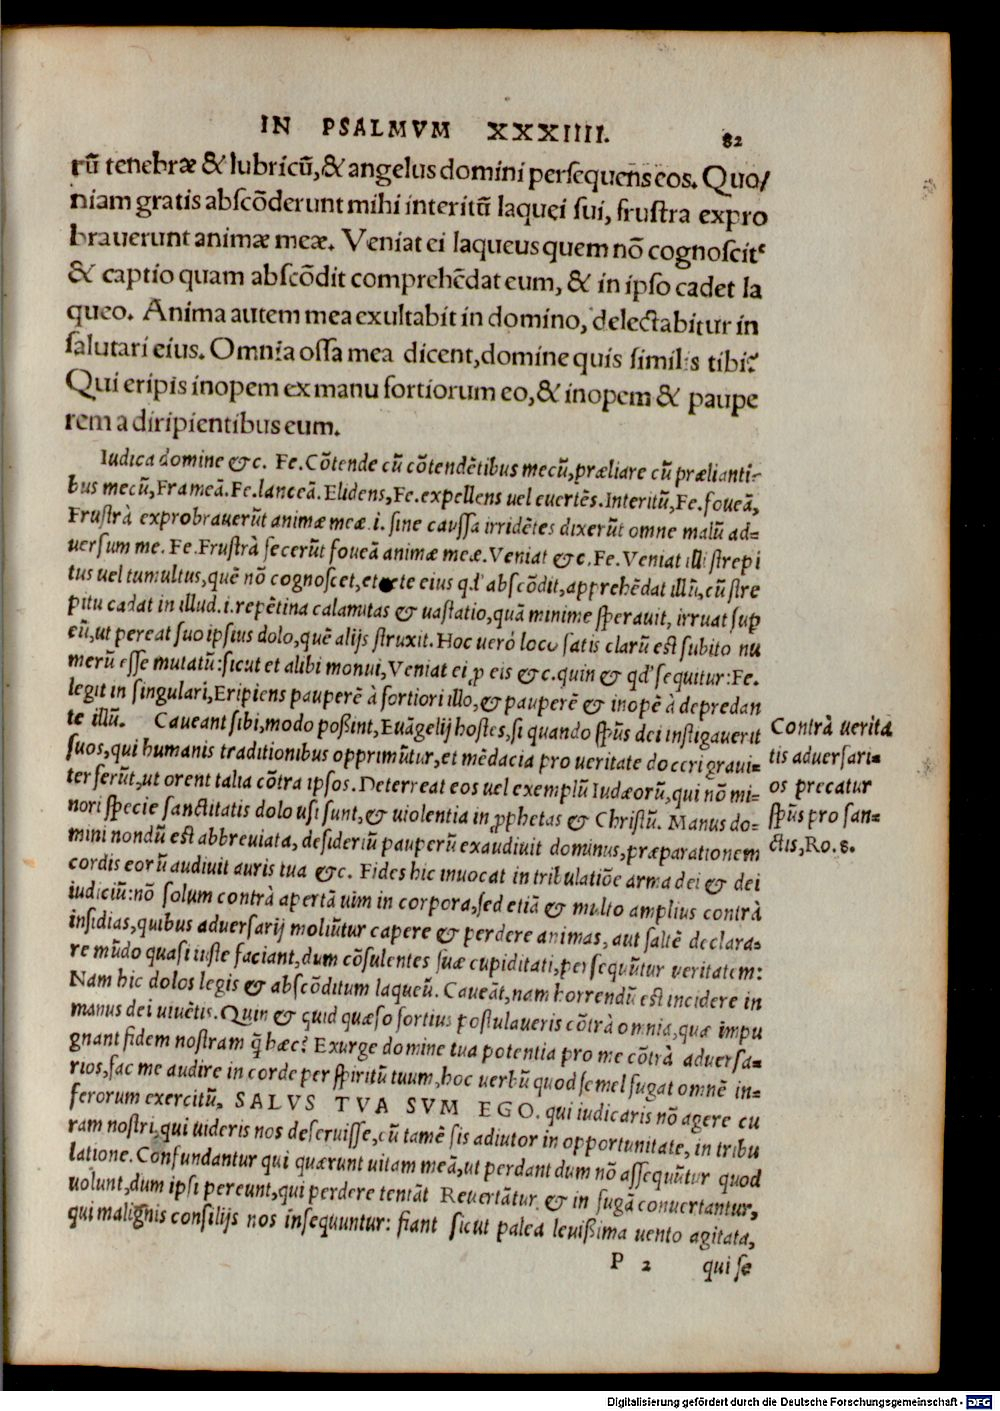 IN PSALMVM XXXIIII. 82
rū tenebræ & lubricū, & angelus domini persequens eos. Quo/
niam gratis abscōderunt mihi interitū laquei sui, frustra expro
brauerunt animæ meæ. Veniat ei laqueus quem nō cognoscit:
& captio quam abscōdit comprehēdat eum, & in ipso cadet la
queo. Anima autem mea exultabit in domino, delectabitur in
salutari eius. Omnia ossa mea dicent, domine quis similis tibi?
Qui eripis inopem ex manu fortiorum eo, & inopem & paupe
rem a diripientibus eum.
Iudica domine &c. Fe. Cōtende cū cōtendētibus mecū, præliare cū prælianti-
bus mecū, Frameā. Fe. lanceā. Elidens, Fe. expellens uel euertēs. Interitū, Fe. foueā,
Frustrà exprobrauerūt animæ meæ .i. sine caussa irridētes dixerūt omne malū ad=
uersum me. Fe. Frustrà fecerūt foueā animæ meæ. Veniat &c. Fe. Veniat illi strepi
tus uel tumultus, quē nō cognoscet, et rete eius qd' abscōdit, apprehēdat illū, cū stre
pitu cadat in illud .i. repētina calamitas & uastatio, quā minime sperauit, irruat sup
eū, ut pereat suo ipsius dolo, quē alijs struxit. Hoc uerò loco satis clarū est subito nu
merū esse mutatū: sicut et alibi monui, Veniat ei, ꝓ eis &c. quin & qd' sequitur: Fe.
legit in singulari, Eripiens pauperē à fortiori illo, & pauperē & inopē à depredan
te illū. Caueant sibi, modo poßint, Euāgelij hostes, si quando spūs dei instigauerit
suos, qui humanis traditionibus opprimūtur, et mēdacia pro ueritate doceri graui=
ter ferūt, ut orent talia cōtra ipsos. Deterreat eos uel exemplū Iudæorū, qui nō mi=
nori specie sanctitatis dolo usi sunt, & uiolentia in ꝓphetas & Christū. Manus do=
mini nondū est abbreuiata, desideriū pauperū exaudiuit dominus, præparationem
cordis eorū audiuit auris tua &c. Fides hic inuocat in tribulatiōe arma dei & dei
iudiciū: nō solum contrà apertā uim in corpora, sed etiā & multo amplius contrà
insidias, quibus aduersarij moliūtur capere & perdere animas, aut saltē declara=
re mūdo quasi iuste faciant, dum cōsulentes suæ cupiditati, persequūtur ueritatem:
Nam hic dolos legis & abscōditum laqueū. Caueāt, nam horrendū est incidere in
manus dei uiuētis. Quin & quid quæso fortius postulaueris cōtrà omnia, quæ impu
gnant fidem nostram q̄ hæc? Exurge domine tua potentia pro me cōtrà aduersa=
rios, fac me audire in corde per spiritū tuum, hoc uerbū quod semel fugat omnē in=
ferorum exercitū, SALVS TVA SVM EGO. qui iudicaris nō agere cu
ram nostri, qui uideris nos deseruisse, cū tamē sis adiutor in opportunitate, in tribu
latione. Confundantur qui quærunt uitam meā, ut perdant dum nō assequūtur quod
uolunt, dum ipsi pereunt, qui perdere tentāt Reuertātur & in fugā conuertantur,
qui malignis consilijs nos insequuntur: fiant sicut palea leuißima uento agitata,
P 2 qui se
Contrà uerita
tis aduersari=
os precatur
spūs pro san=
ctis, Ro. 8.
Digitalisierung gefördert durch die Deutsche Forschungsgemeinschaft - DFG